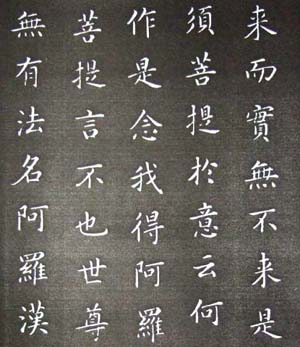 来而實無不来是
須菩提於意云何
作是念我得阿羅
菩提言不也世尊
無有法名阿羅漢